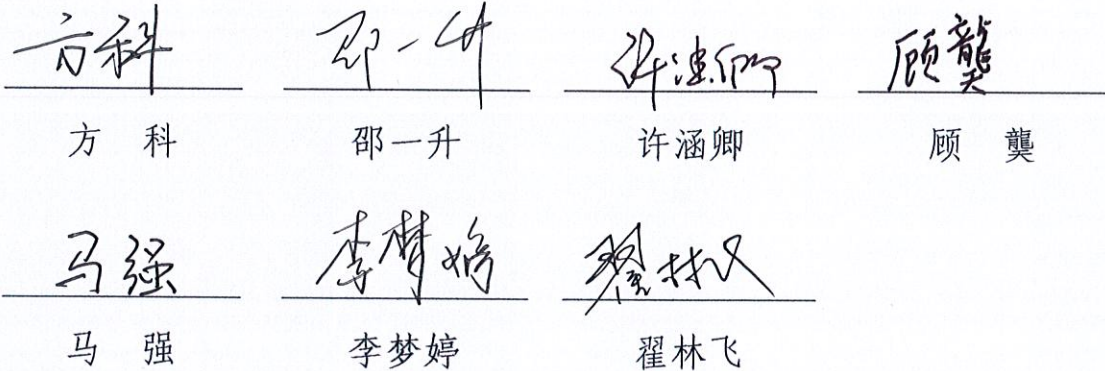 方科 邵一升 许涵卿 顾龑
方 科 邵一升 许涵卿 顾 龑
马强 李梦婷 翟林飞
马 强 李梦婷 翟林飞